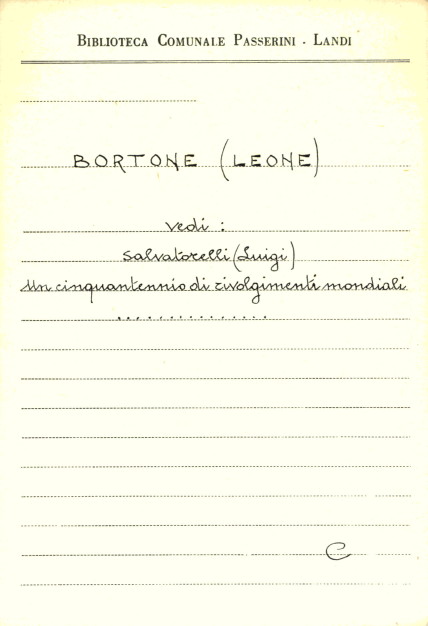 BIBLIOTECA COMUNALE PASSERINI - LANDI
BORTONE (LEONE)
vedi :
Salvatorelli (Luigi)
Un cinquantennio di rivolgimenti mondiali
. . . . . . . . . . . . . . .
C